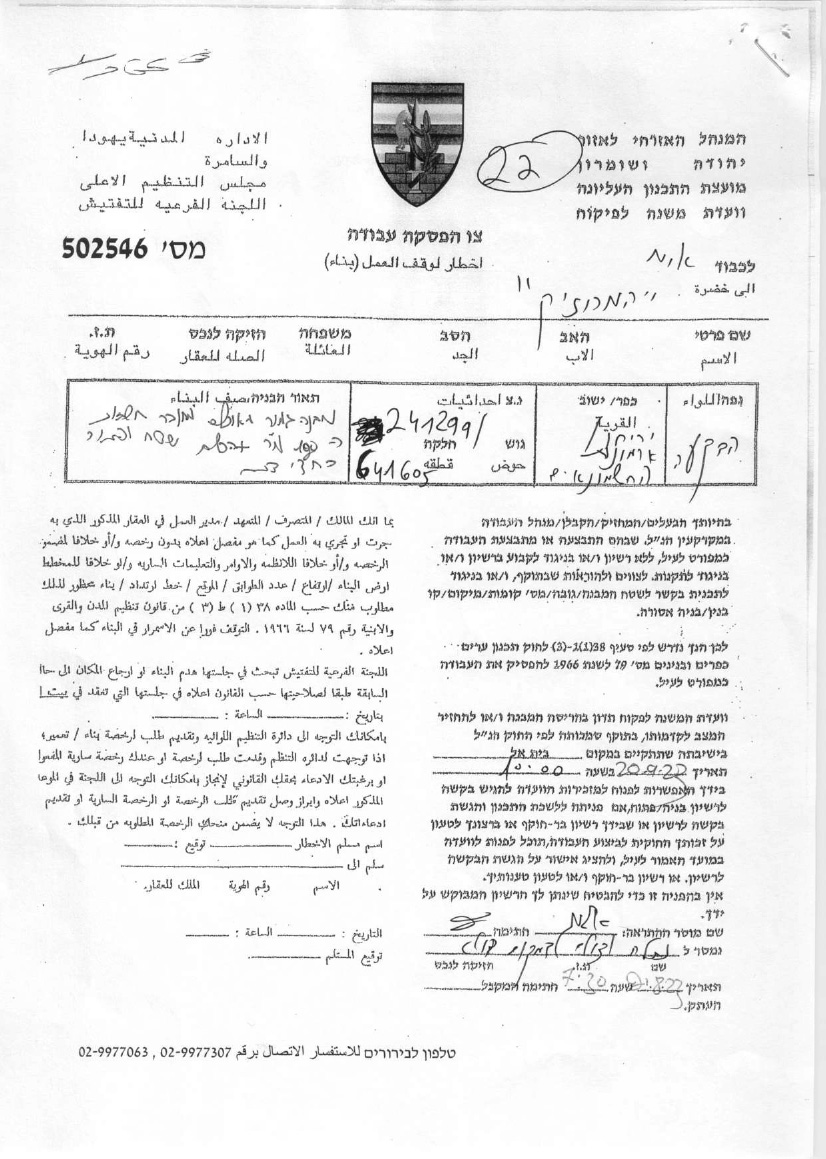 המנהל האזרחי לאזור
יהודה ושומרון
מועצת התכנון העליונה
וועדת משנה לפיקוח
22
الاداره المدنية يهودا
والسامرة
مجلس التنظيم الاعلى
اللجنه الفرعيه للتفتيش
צו הפסקה עבודה
اخطار لوقف العمل (بناء)
מס' 502546
לכבוד
الى حضرة
שם פרטי האב הסב משפחה חזיקה לנכס ת.ז.
الاسم الاب الجد العائلة الصله للعقار رقم الهوية
נפה/اللواء
הבקעה
כפר/ ישוב
القرية
יריחו
נ.צ احداثيات
241299
גוש חלקה
حوض قطعه
641605
תאור הבניה/صيف البناء
בהיותך הבעלים/המחזיק/הקבלן/מנהל העבודה
במקרקעין הנ"ל, שבהם התבצעה או מתבצעת העבודה
כמפורט לעיל, ללא רשיון ו/או בניגוד לקבוע ברשיון ו/או
בניגוד לתקנות, לצווים ולהוראות שבתוקף, ו/או בניגוד
לתכנית בקשר לשטח המבנה/גובה/מס' קומות/מיקום/קו
בנין/בניה אסורה.
לכן הנך נדרש לפי סעיף 38(1)-(3) לחוק תכנון ערים
כפרים ובנינים מס' 79 לשנת 1966 להפסיק את העבודה
כמפורט לעיל.
וועדת המשנה לפקוח תדון בהריסת המבנה ו/או להחזיר
המצב לקדמותו, בתוקף סמכותה לפי החוק הנ"ל
בישיבתה שתתקיים במקום בית אל
תאריך 20.9.22 בשעה 10:00
בידך האפשרות לפנות למזכירות הוועדה להגיש בקשה
לרשיון בניה/פתוח, אם פניתה ללשכת התכנון והגשת
בקשה לרשיון או שבידך רשיון בר-תוקף או ברצונך לטעון
על זכותך החוקית לביצוע העבודה, תוכל לפנות לוועדה
במועד האמור לעיל, ולהציג אישור על הגשת הבקשה
לרשיון, או רשיון בר-תוקף ו/או לטעון טענותיך.
אין בהפניה זו כדי להבטיח שינתן לך הרשיון המבוקש על
ידך.
שם מוסר ההתראה: חתימה
נמסר ל
שם ת.ז. חזיקה לנכס
תאריך 21.8.22 שעה 7:30 חתימה המקבל
העתק:
بما انك المالك / المتصرف / المتعهد / مدير العمل في العقار المذكور الذي به
جرت او تجري به العمل كما هو مفصل اعلاه بدون رخصه و/أو خلافا لمضمون
الرخصه و/أو خلافا للانظمه والاوامر والتعليمات الساريه و/او خلافا للمخطط
اوض البناء /ارتفاع / عدد الطوابق / الموقع / خط ارتداد / بناء محظور لذلك
مطلوب منك حسب الماده ٣٨ (١) ط (٣) من قانون تنظيم المدن والقرى
والابنية رقم ٧٩ لسنة ١٩٦٦، التوقف فورا عن الاسمرار في البناء كما مفصل
اعلاه.
اللجنة الفرعية للتفتيش تبحث في جلستها هدم البناء او ارجاع المكان الى
السابقة طبقا لصلاحيتها حسب القانون اعلاه في جلستها التي تنعقد في
بتاريخ: الساعة:
بامكانك التوجه الى دائرة التنظيم اللوائيه وتقديم طلب لرخصة بناء / تعمير،
اذا توجهت لدائره التنظم وقدمت طلب لرخصة او عندك رخصة سارية
او برغبتك الادعاء بحقك القانوني لإنجاز بامكانك التوجه الى اللجنة في
المذكور اعلاه وابراز وصل تقديم طلب الرخصة او الرخصة السارية او تقديم
ادعاءاتك. هذا التوجه لا يضمن منحك الرخصة المطلوبه من قبلك.
اسم مسلم الاخطار توقيع:
سلم الى
الاسم رقم الهوية الملك للعقار.
التاريخ: الساعة:
توقيع المستلم
טלפון לבירורים للاستفسار الاتصال برقم 02-9977307 , 02-9977063